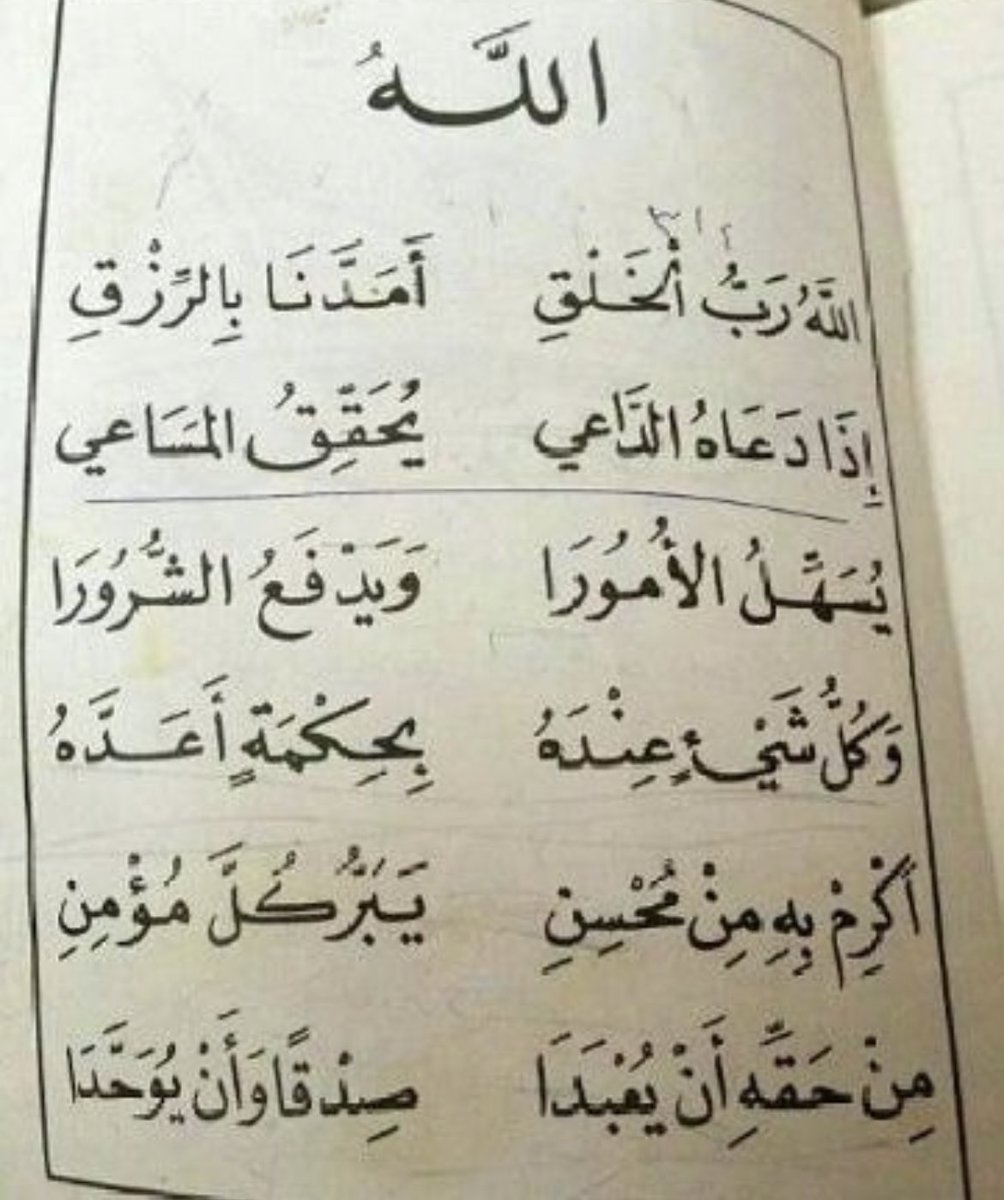 اللَّهُ
اللَّهُ رَبُّ الْخَلْقِ أَمَدَّنَا بِالرِّزْقِ
إِذَا دَعَاهُ الدَّاعِي يُحَقِّقُ المَسَاعِي
يُسَهِّلُ الأُمُورَا وَيَدْفَعُ الشُّرُورَا
وَكُلُّ شَيْءٍ عِنْدَهُ بِحِكْمَةٍ أَعَدَّهُ
أَكْرِمْ بِهِ مِنْ مُحْسِنِ يَبَرُّ كُلَّ مُؤْمِنِ
مِنْ حَقِّهِ أَنْ يُعْبَدَا صِدْقًا وَأَنْ يُوَحَّدَا